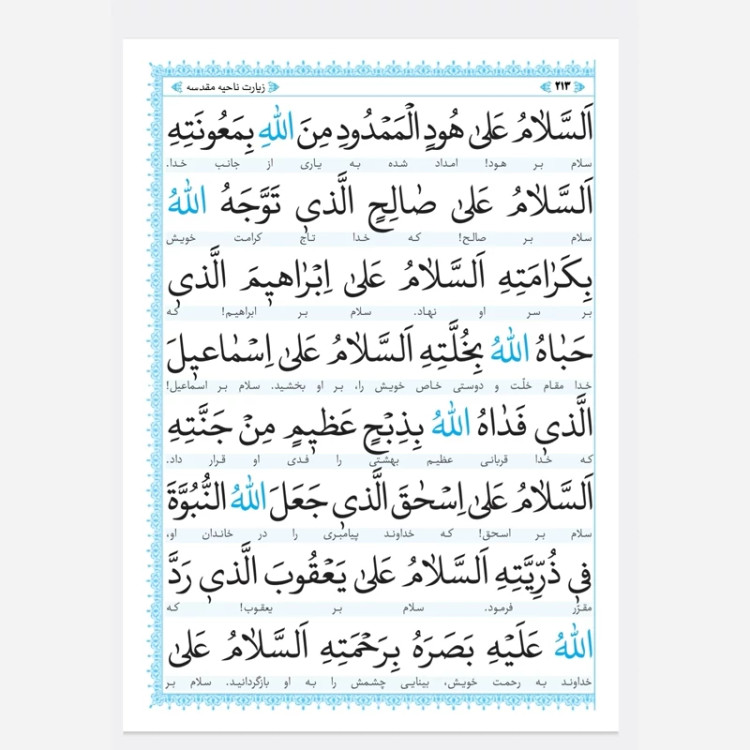 ۲۱۳ زیارت ناحیه مقدسه
اَلسَّلٰامُ عَلیٰ هُودٍ الْمَمْدُودِ مِنَ اللهِ بِمَعُونَتِهِ
سلام بر هود! امداد شده به یاری از جانب خدا.
اَلسَّلٰامُ عَلیٰ صٰالِحٍ الَّذي تَوَّجَهُ اللهُ
سلام بر صالح! که خدا تاج کرامت خویش
بِکَرٰامَتِهِ اَلسَّلٰامُ عَلیٰ اِبْرٰاهيمَ الَّذي
بر سر او نهاد. سلام بر ابراهیم! که
حَبٰاهُ اللهُ بِخُلَّتِهِ اَلسَّلٰامُ عَلیٰ اِسْمٰاعيلَ
خدا مقام خلّت و دوستی خاص خویش را، بر او بخشید. سلام بر اسماعیل!
الَّذي فَدٰاهُ اللهُ بِذِبْحٍ عَظيمٍ مِنْ جَنَّتِهِ
که خدا قربانی عظیم بهشتی را فدی او قرار داد.
اَلسَّلٰامُ عَلیٰ اِسْحٰقَ الَّذي جَعَلَ اللهُ النُّبُوَّةَ
سلام بر اسحق! که خداوند پیامبری را در خاندان او،
في ذُرِّيَّتِهِ اَلسَّلٰامُ عَلیٰ يَعْقُوبَ الَّذي رَدَّ
مقرّر فرمود. سلام بر یعقوب! که
اللهُ عَلَيْهِ بَصَرَهُ بِرَحْمَتِهِ اَلسَّلٰامُ عَلیٰ
خداوند به رحمت خویش، بینایی چشمش را به او بازگردانید. سلام بر